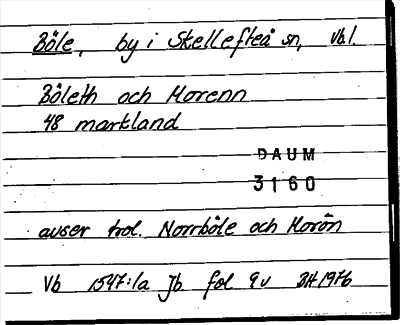 Böle, by i Skellefteå sn, Vb.l.
Böleth och Morenn
48 markland
DAUM
3160
avser trol. Norrböle och Morön
Vb 1547:1a Jb fol 9v BH 1976